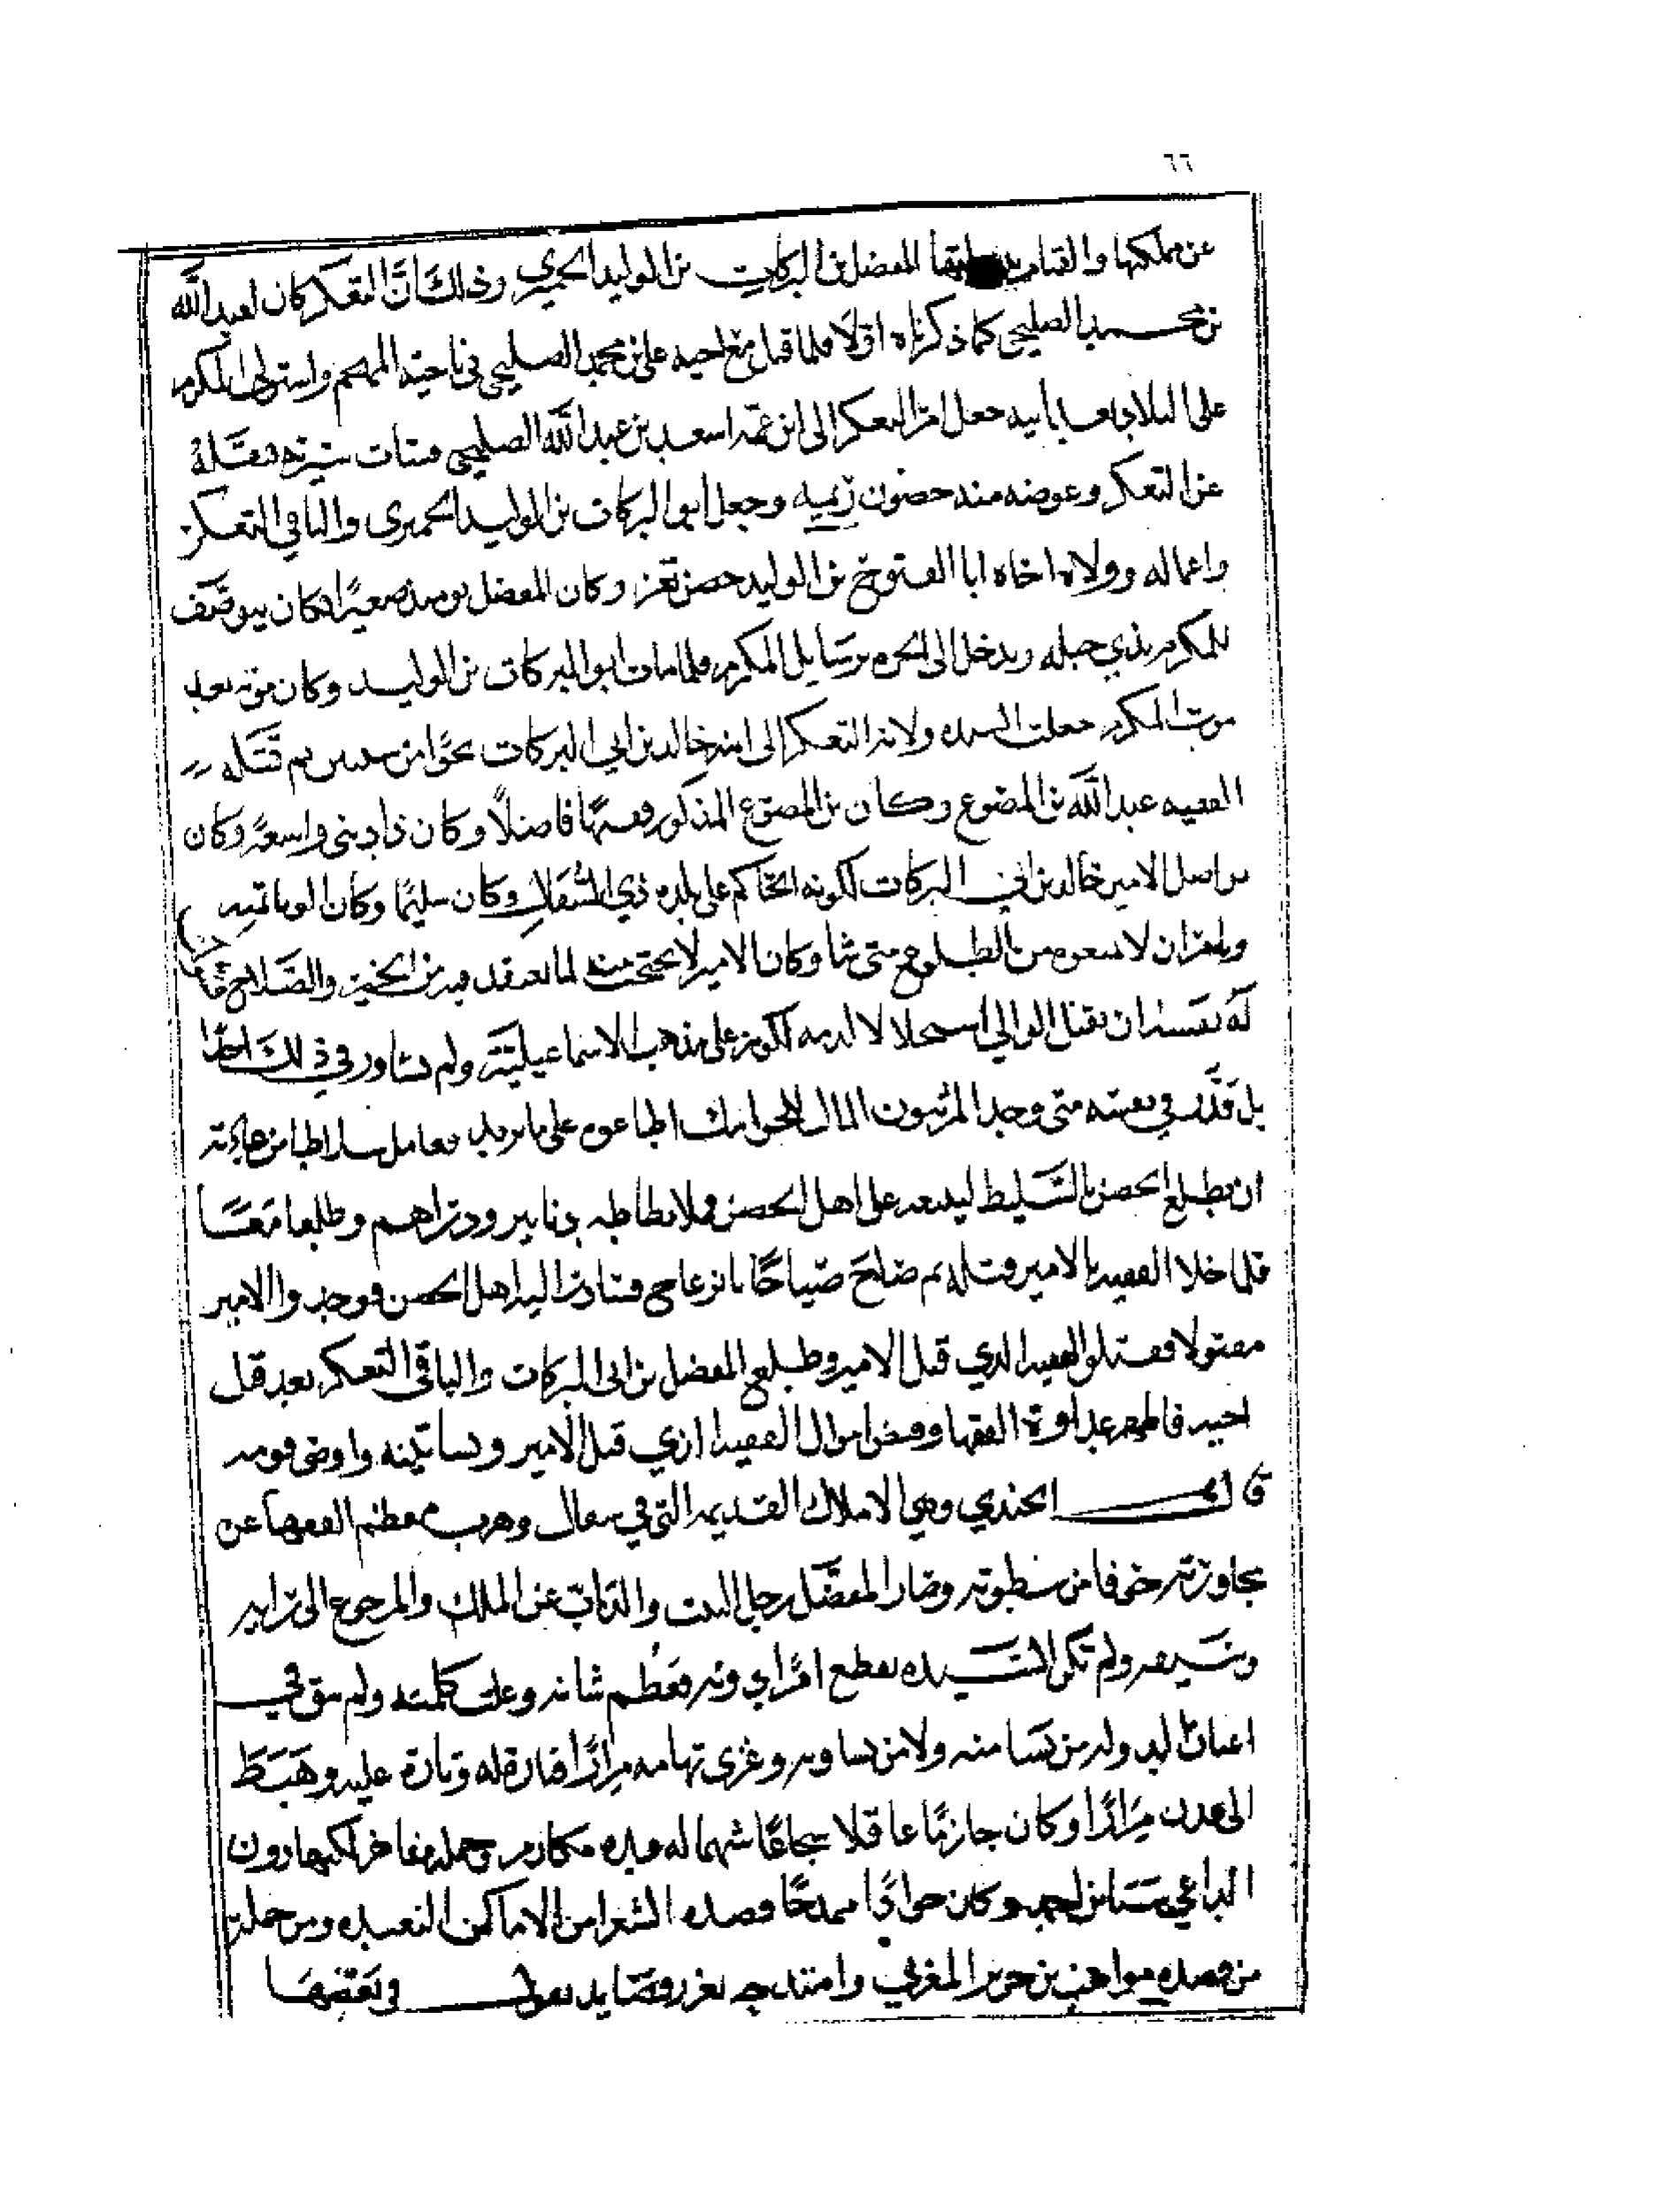 ٦٦
عن مملكتها والقيام المفضل بن البركات بن الوليد الحميري وذلك أنّ التعكر كان لعبد الله
بن محمد الصليحي كما ذكرناه اولًا فلما قتل مع اخيه علي بن محمد الصليحي في ناحية المهجم واستولى المكرم
على البلاد جعل امر التعكر الى ابن عمه اسعد بن عبد الله الصليحي فسات سيرته فنقله
عن التعكر وعوضه منه حصون ريمه وجعل ابو البركات بن الوليد الحميري واليا في التعكر
واعماله وولاه اخاه ابا الفتوح بن الوليد حصن تعز وكان المفضل يومئذ صغيرًا فكان يتوصّف
للمكرم بذي جبله ويدخل الى الحره برسايل المكرم فلما مات ابو البركات بن الوليد وكان موته بعد
موت المكرم جعلت السيده ولاية التعكر الى ابنه خالد بن ابي البركات نحوًا من سنتين ثم قتله
الفقيه عبد الله بن المصوع وكان بن المصوع المذكور فقيهًا فاضلًا وكان ذا دنيا واسعة وكان
يواصل الامير خالد بن ابي البركات لكونه الحاكم على بلده ذي السفال وكان سليمًا وكان الوالي
ويامر ان لا يمنعوه من الطلوع متى شا وكان الامير لا يحتجب منه لما يعتقد فيه من الخير والصلاح
له نفسه ان يقتل الوالي استحلالا لدمه لكونه على مذهب الاسماعيليّة ولم يشاور في ذلك احدًا
بل قدّر في نفسه متى وجد المرتبون المال اطاعوه على ما يريد فعامل من عادته
ان يطلع الحصن بالسّليط ليبيعه على اهل الحصن دنانير ودراهم وطلعا معًا
فلما خلا الفقيه بالامير قتله ثم صاح صياحًا بانزعاج فتبادر اليه اهل الحصن فوجدوا الامير
مقتولا فقتلوا الفقيه الذي قتل الامير وطلع المفضل بن ابي البركات واليا في التعكر بعد قتل
اخيه فاظهر عداوة الفقها وقبض اموال الفقيه الذي قتل الامير وبساتينه واراضي قومه
قال الجندي وهي الاملاك القديمه التي في سفال وهرب معظم الفقها عن
مجاورته خوفا من سطوته وصار المفضّل رجل البيت والذابّ عن الملك والمرجوع الى رايه
وسيفه ولم تكن السّيده تقطع امرًا دونه فعظم شانه وعلت كلمته ولم يبق في
اعيان الدوله من يسامنه ولا من يساويه وغزى تهامه مرارًا فتارة له وتارة عليه وهبط
الى عدن مرارًا وكان حازمًا عاقلا شجاعًا شهما له عده مكارم وجمله مفاخر
وكان جوادًا ممدحًا قصده الشعرا من الاماكن البعيده ومن جملة
من قصده مواهب بن جرير المغربي وامتدحه بغرر وقصايد يقول في بعضها